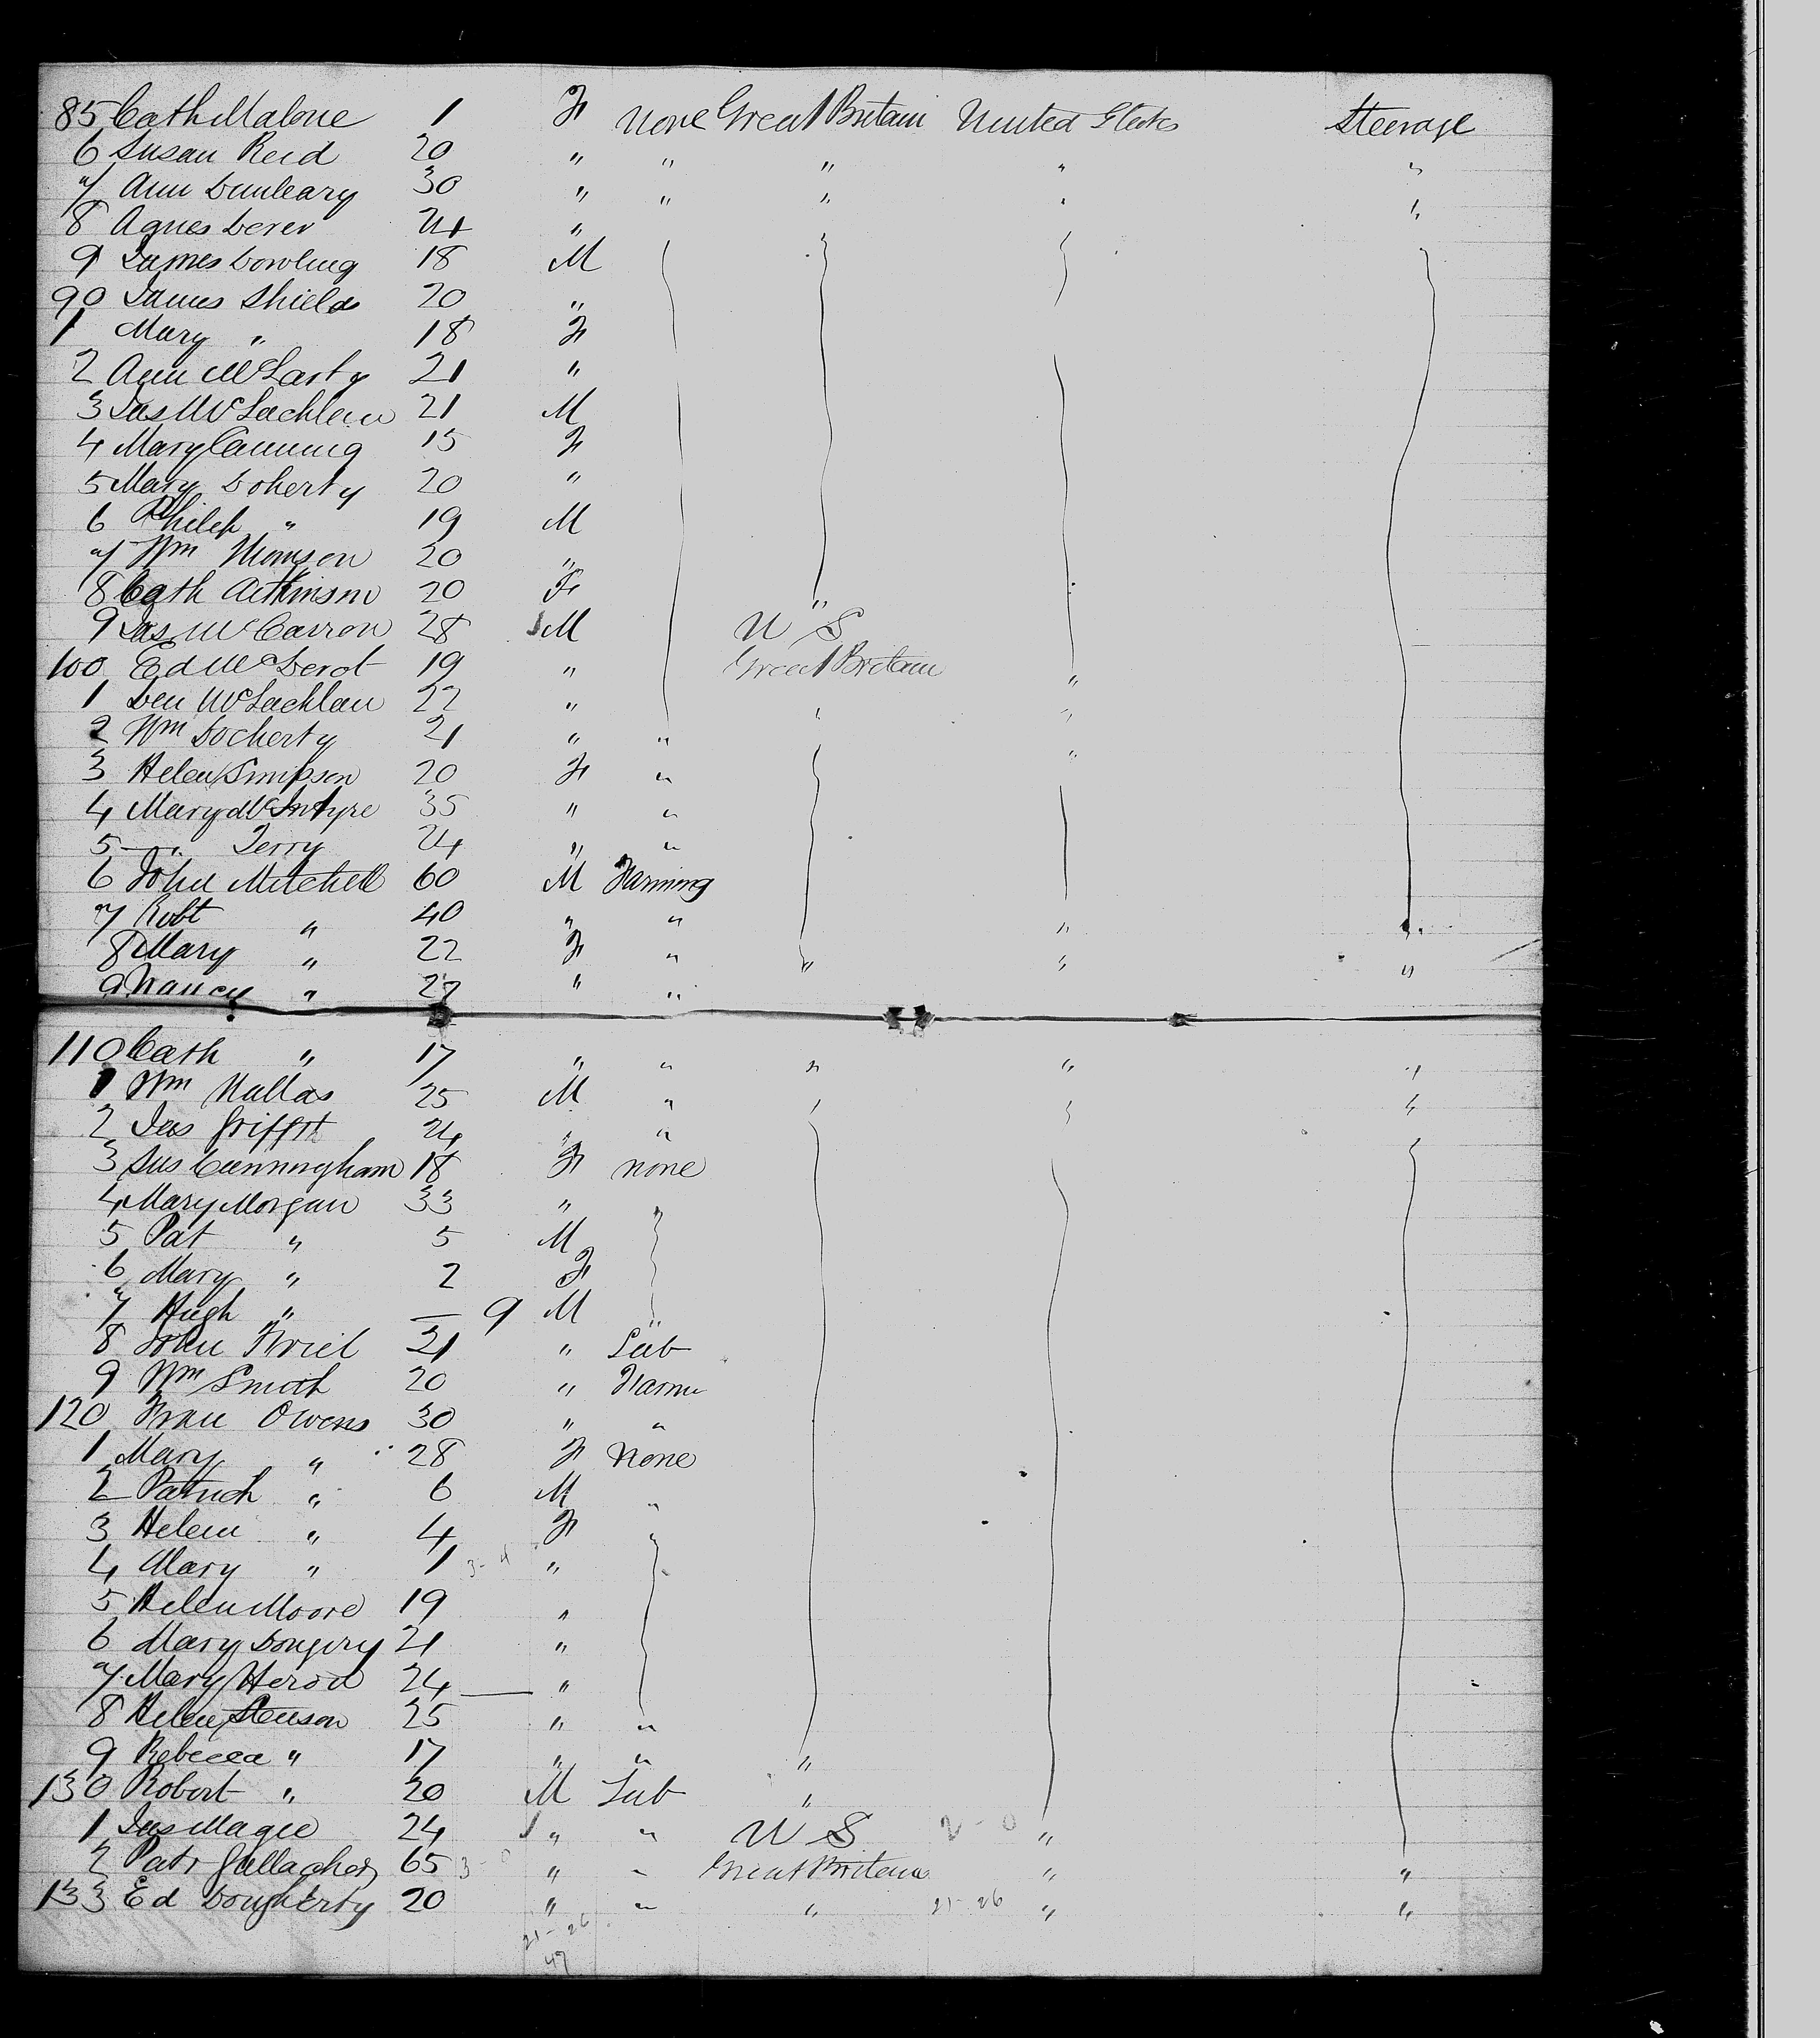 85 Cath Malone 1 F none Great Britain United States Steerage
6 Susan Reid 20 " " " " "
7 Ann Dunleavy 30 " " " " "
8 Agnes Dever 24 "
9 James Dowling 18 M
90 James Shields 20 "
1 Mary " 18 F
2 Ann McLarty 21 "
3 Jas McLachlan 21 M
4 Mary Canning 15 F
5 Mary Doherty 20 "
6 Philip " 19 M
7 Wm Thomson 20 "
8 Cath Aitkinson 20 F "
9 Jas McCarron 28 M U S
100 Ed McDerot 19 " Great Britain "
1 Den McLachlan 22 " " "
2 Wm Docherty 21 " " "
3 Helen Simpson 20 F "
4 Mary McIntyre 35 " "
5 — " Terry 24 " "
6 John Mitchell 60 M Farming
7 Robt " 40 " " " "
8 Mary " 22 F " " " "
9 Nancy " 27 " "
110 Cath " 17 " " " " "
1 Wm Nallas 25 M " " " "
2 Jas Griffit 24 " "
3 Sus Cunningham 18 F none
4 Mary Morgan 33 " "
5 Pat " 5 M
6 Mary " 2 F
7 Hugh " — 9 M "
8 John Friel 21 " Lab
9 Wm Smith 20 " Farm
120 Fran Owens 30 " "
1 Mary " 28 F none
2 Patrick " 6 M "
3 Helen " 4 F "
4 Mary " 1 3-4 "
5 Helen Moore 19 "
6 Mary 21 "
7 Mary Herod 24 — "
8 Helen Stenson 25 " "
9 Rebecca " 17 " " "
130 Robert " 20 M Lab "
1 Jas Magee 24 " " U S 2-0 "
2 Patr Gallagher 65 3-0 " " Great Britain " "
133 Ed Dougherty 20 " " " 21-26 " "
21-26
47